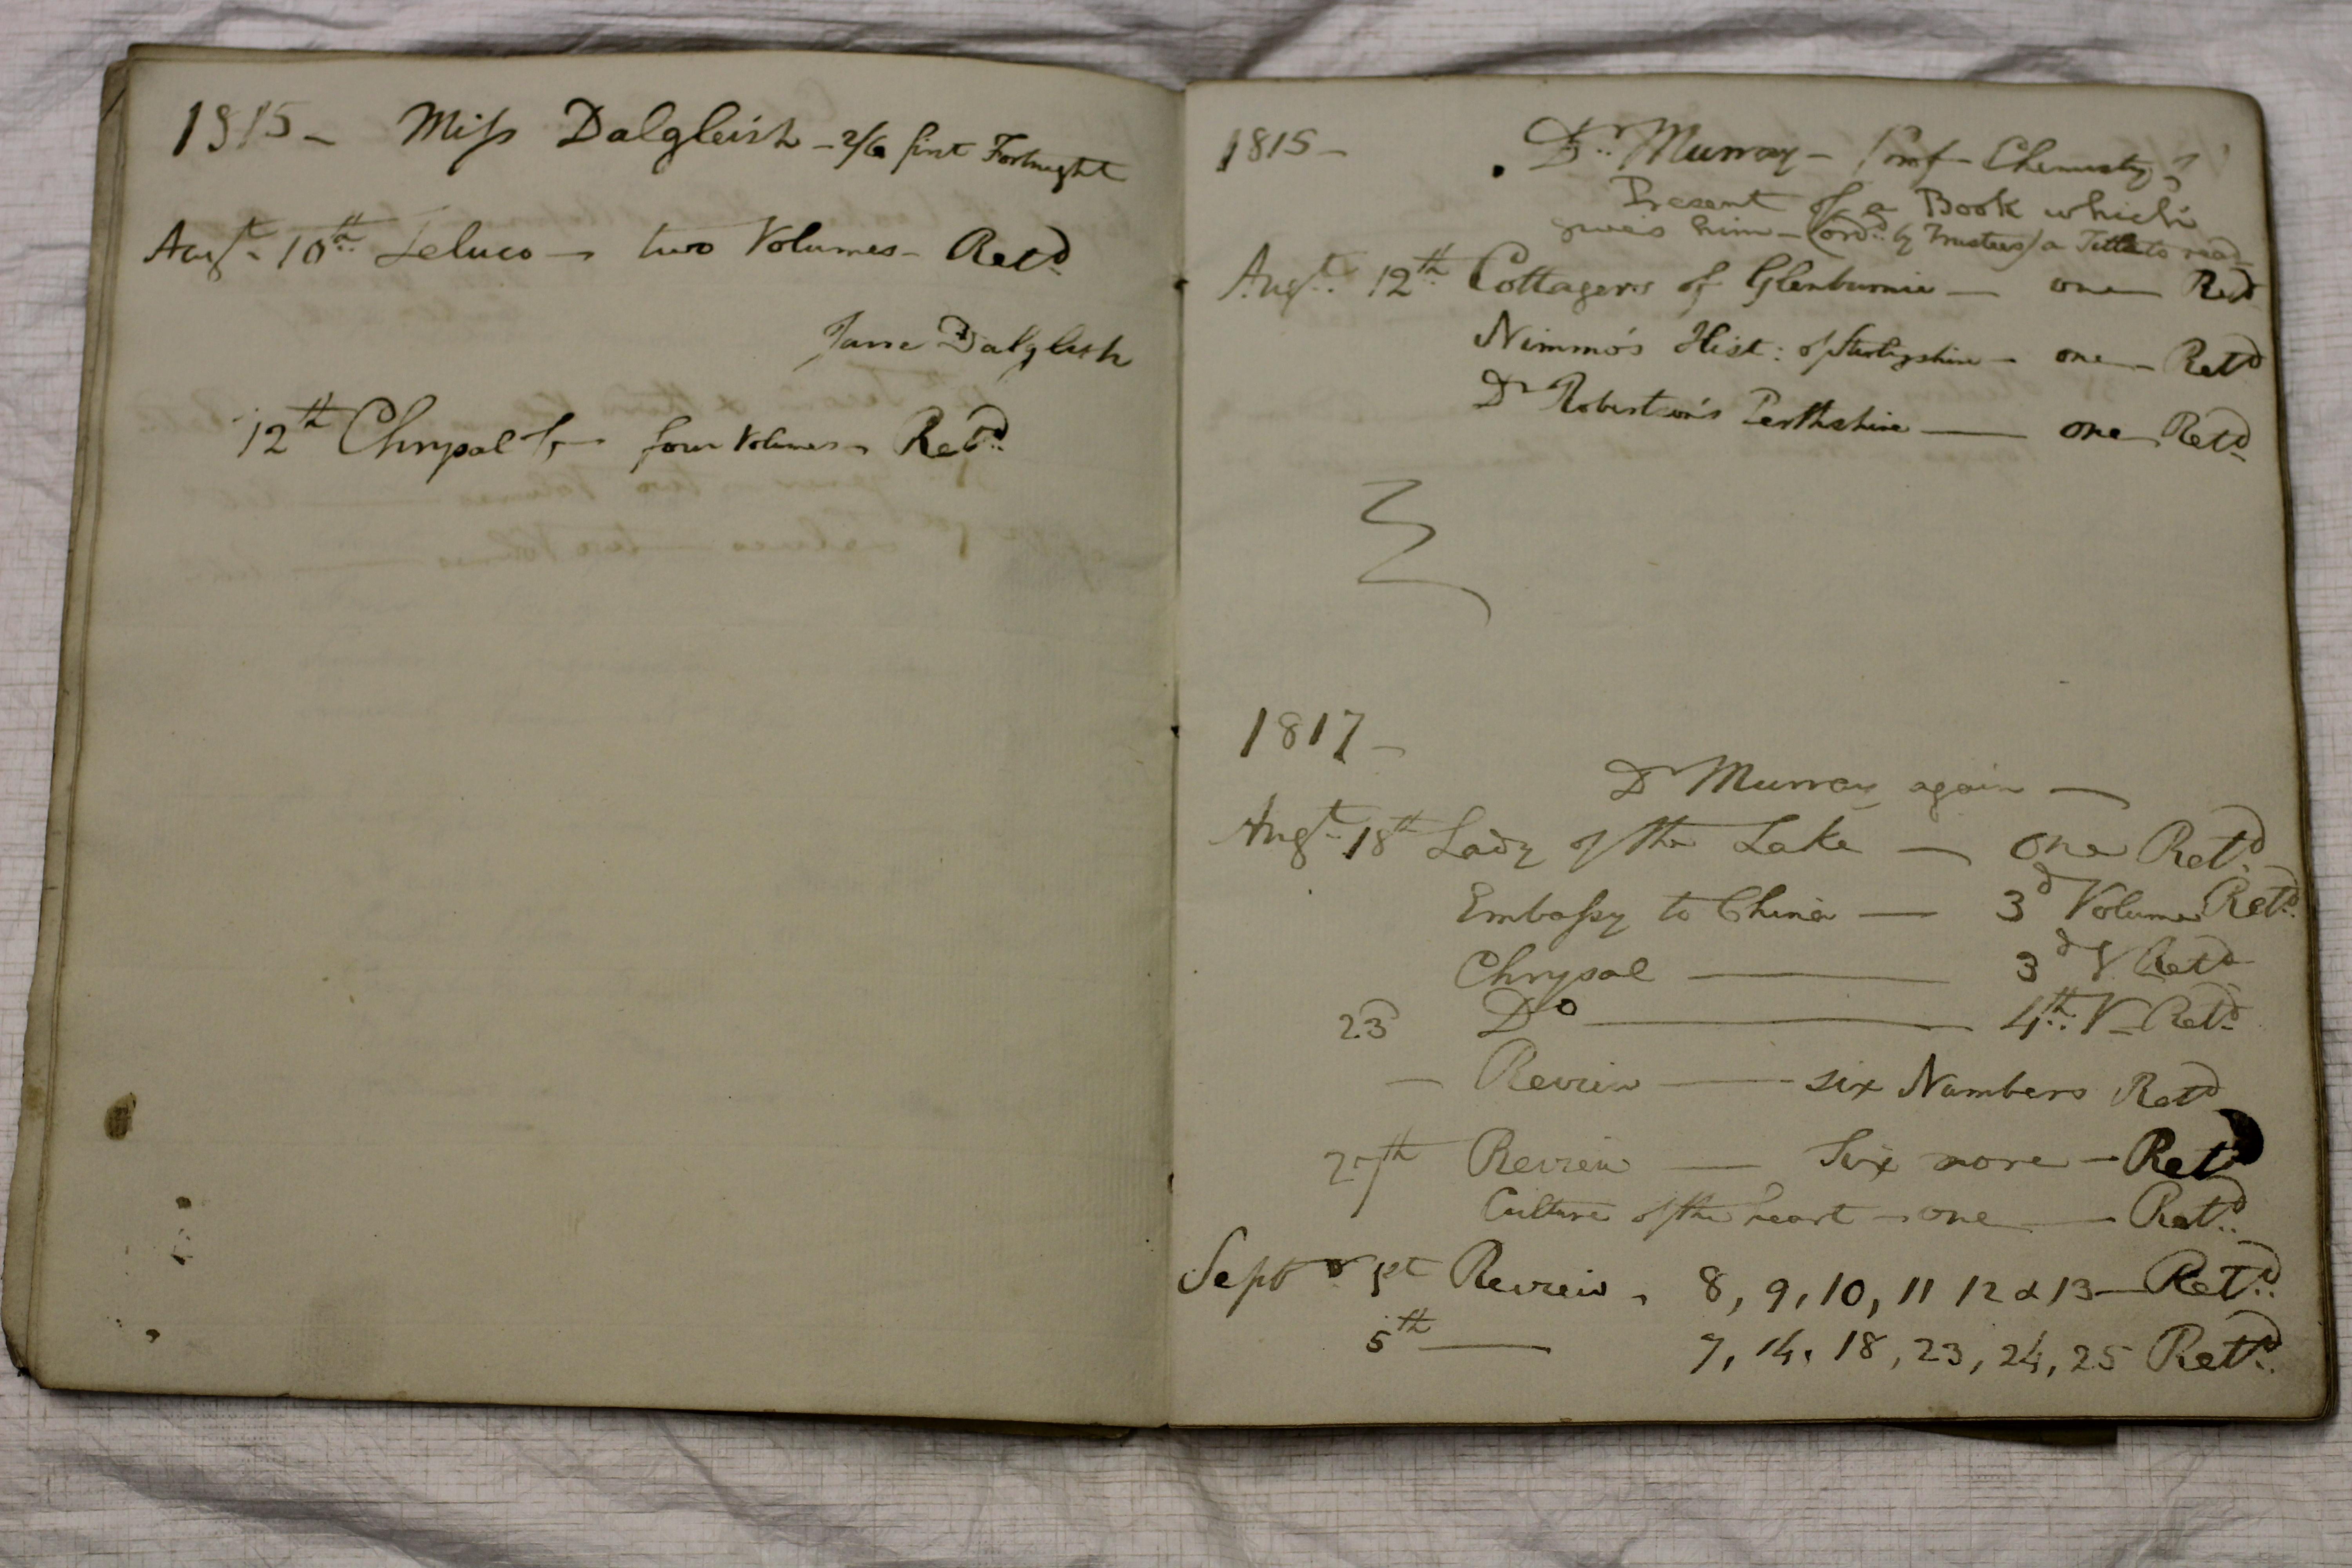 1815 - Miss Dalgleish - 2/6 first Fortnight
Augt. 10th Zeluco - two Volumes - Retd
Jane Dalgleish
12th Chrysal - four Volumes - Retd.
1815 -
Dr. Murray - Prof Chemistry?
Present of a Book which
gives him - (ordd. by Trustees) a Title to read
Augt. 12th Cottagers of Glenburnie - one Retd
Nimmo's Hist: of Stirlingshire - one - Retd
Dr Robertson's Perthshire - one Retd
1817 -
Dr Murray again -
Augt. 18th Lady of the Lake - one Retd.
Embassy to China - 3d Volume Retd.
Chrysal - 3d V. Retd
23 Do - 4th. V - Retd
- Review - six Numbers Retd
27th Review - Six more - Retd
Culture of the heart - one - Retd.
Septr 1st Review - 8, 9, 10, 11 12 & 13 - Retd.
5th - 7, 14, 18, 23, 24, 25 Retd.